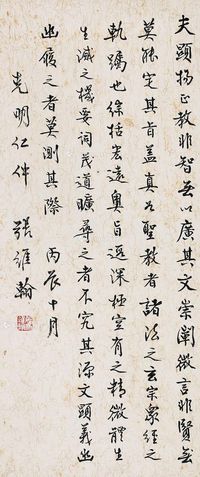 夫顯揚正教非智無以廣其文崇闡微言非賢無
莫能定其旨蓋真如聖教者諸法之玄宗衆經之
軌躅也綜括宏遠奧旨遐深極空有之精微體生
滅之機要詞茂道曠尋之者不究其源文顯義幽
幽履之者莫測其際 丙辰十月
克明仁仲 張維翰